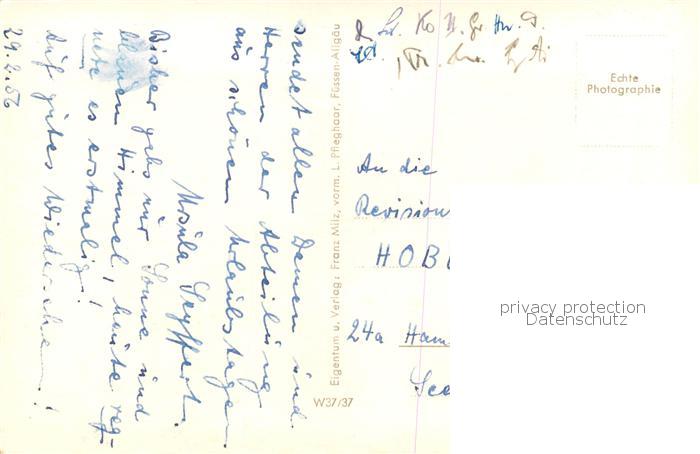 29.2.56
sendet allen Damen und
Herren der Abteilung
aus schönen Urlaubstagen.
Ursula Seyffert.
Bisher gabs nur Sonne und
blauen Himmel, heute reg-
nete es erstmalig!
Auf gutes Wiedersehen!
Eigentum u. Verlag: Franz Milz, vorm. L. Pfleghaar, Füssen-Allgäu
W37/37
Echte
Photographie
An die
Revision
HOB
24a Ham
See
privacy protection
Datenschutz